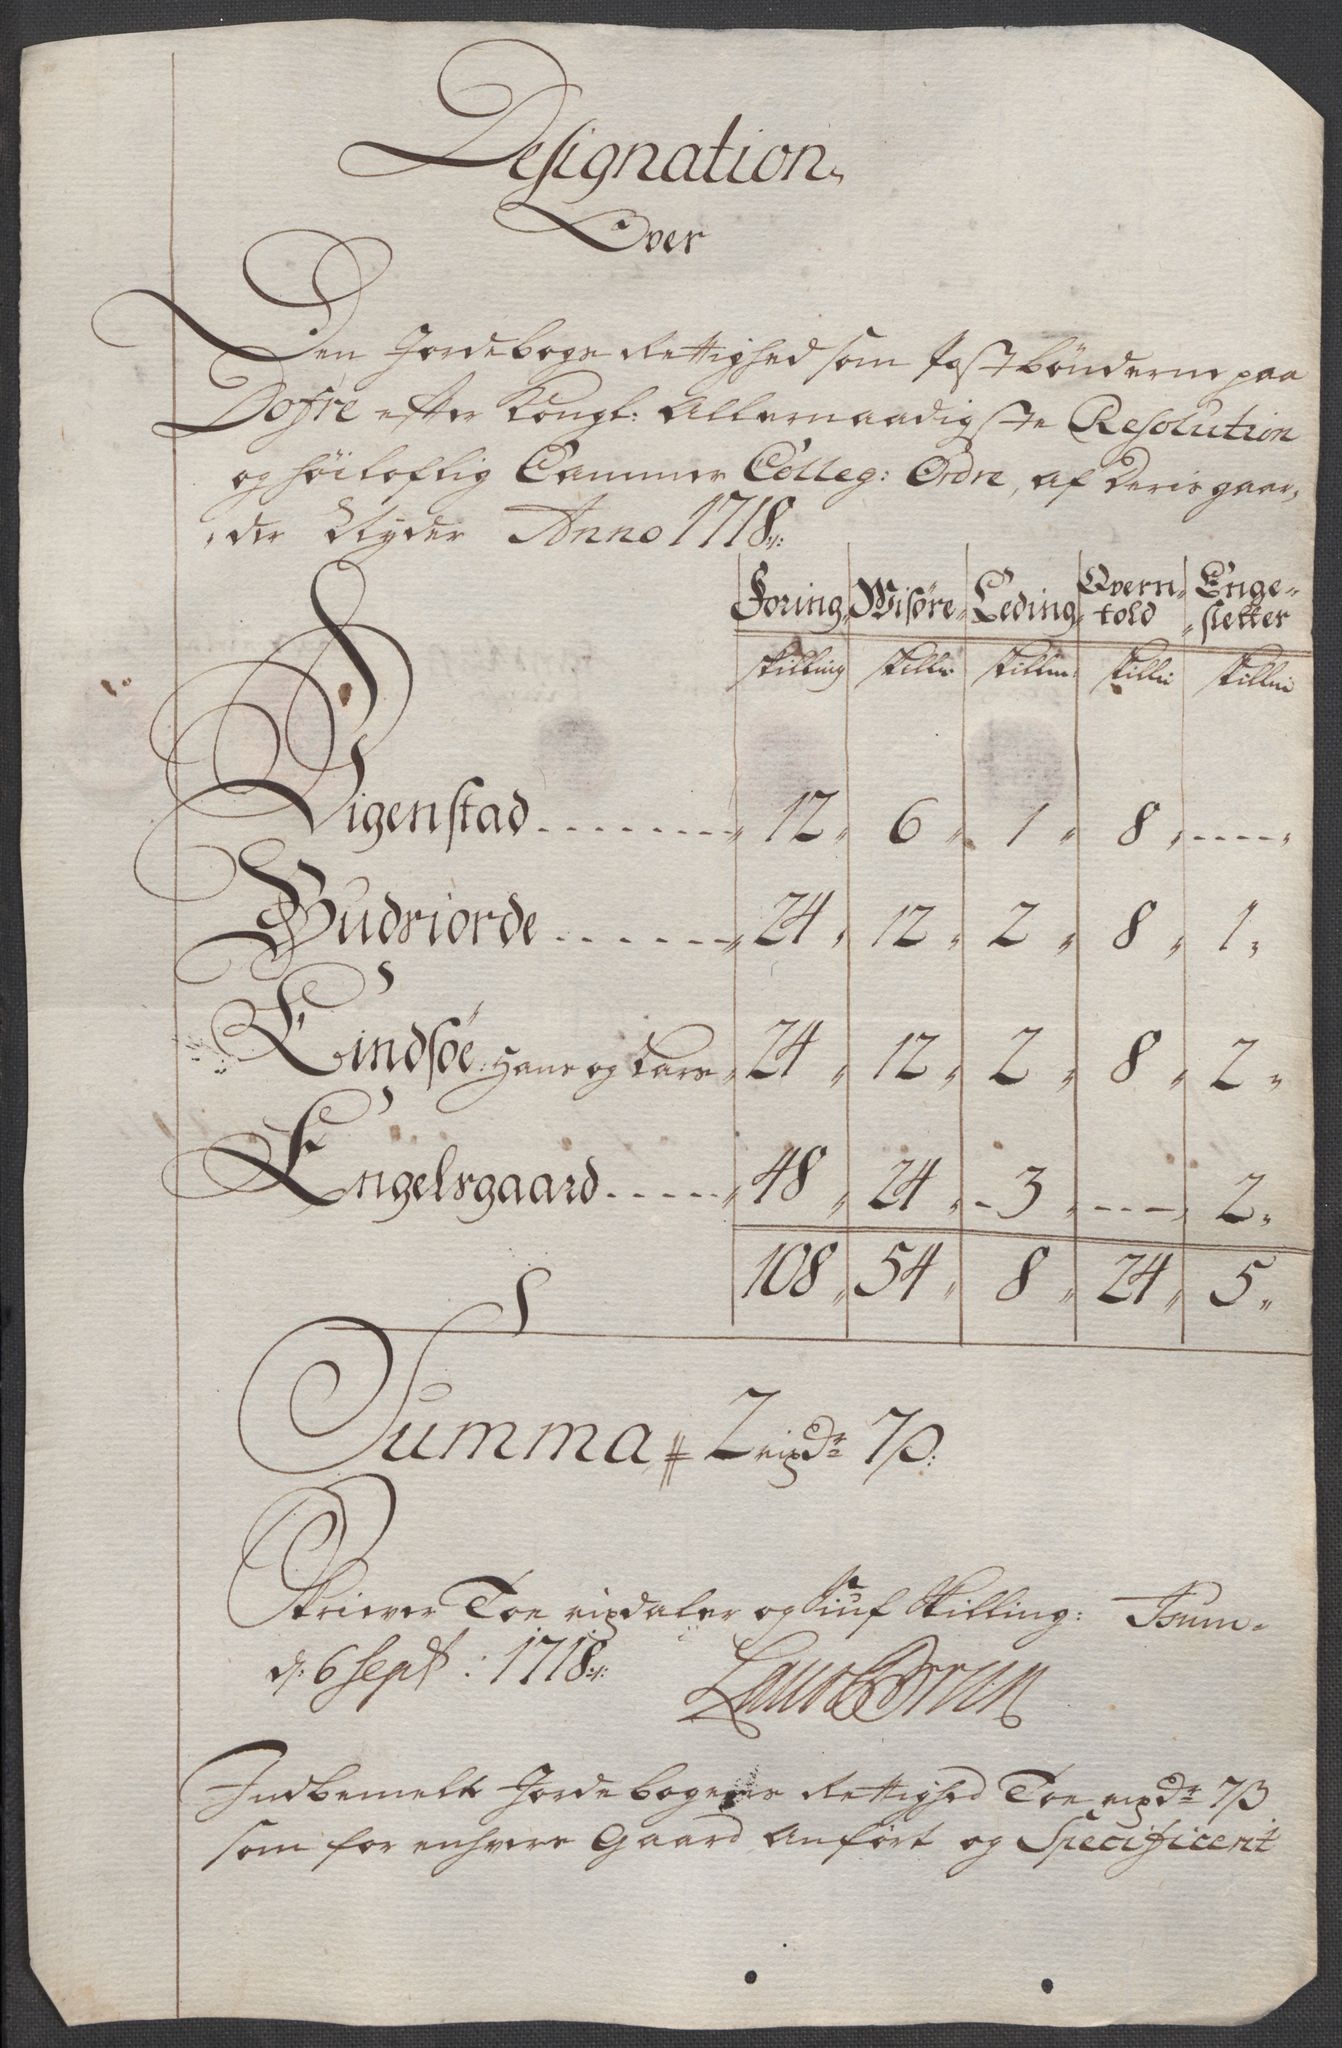 Designation
Over
Den Jordebogs Rettighed som Postbönderne paa
Dofre efter Kongl: Allernaadigste Resolution
og höiloflig Cammer Colleg: Ordre, af Deris gaar-
der Nyder Anno 1718.
Foring Wisöre Leding Qvern- Enge-
told sletter
skilling skilli skillin: skilli skillin
Vigenstad 12 6 1 8 ----
Budsiorde 24 12 2 8 1
Lindsöe: Hans og Lars 24 12 2 8 2
Engelsgaard 48 24 3 ---- 2
108 54 8 24 5
Summa # 2 rixdr 7 ß:
Skriever Toe rixdaler og Siuf Skilling: Toum-
d: 6 Sept: 1718.
Indbemelte Jordebogens Rettighed Toe rixdr 7 ß
som for enhvers Gaard anfört og Specificerit